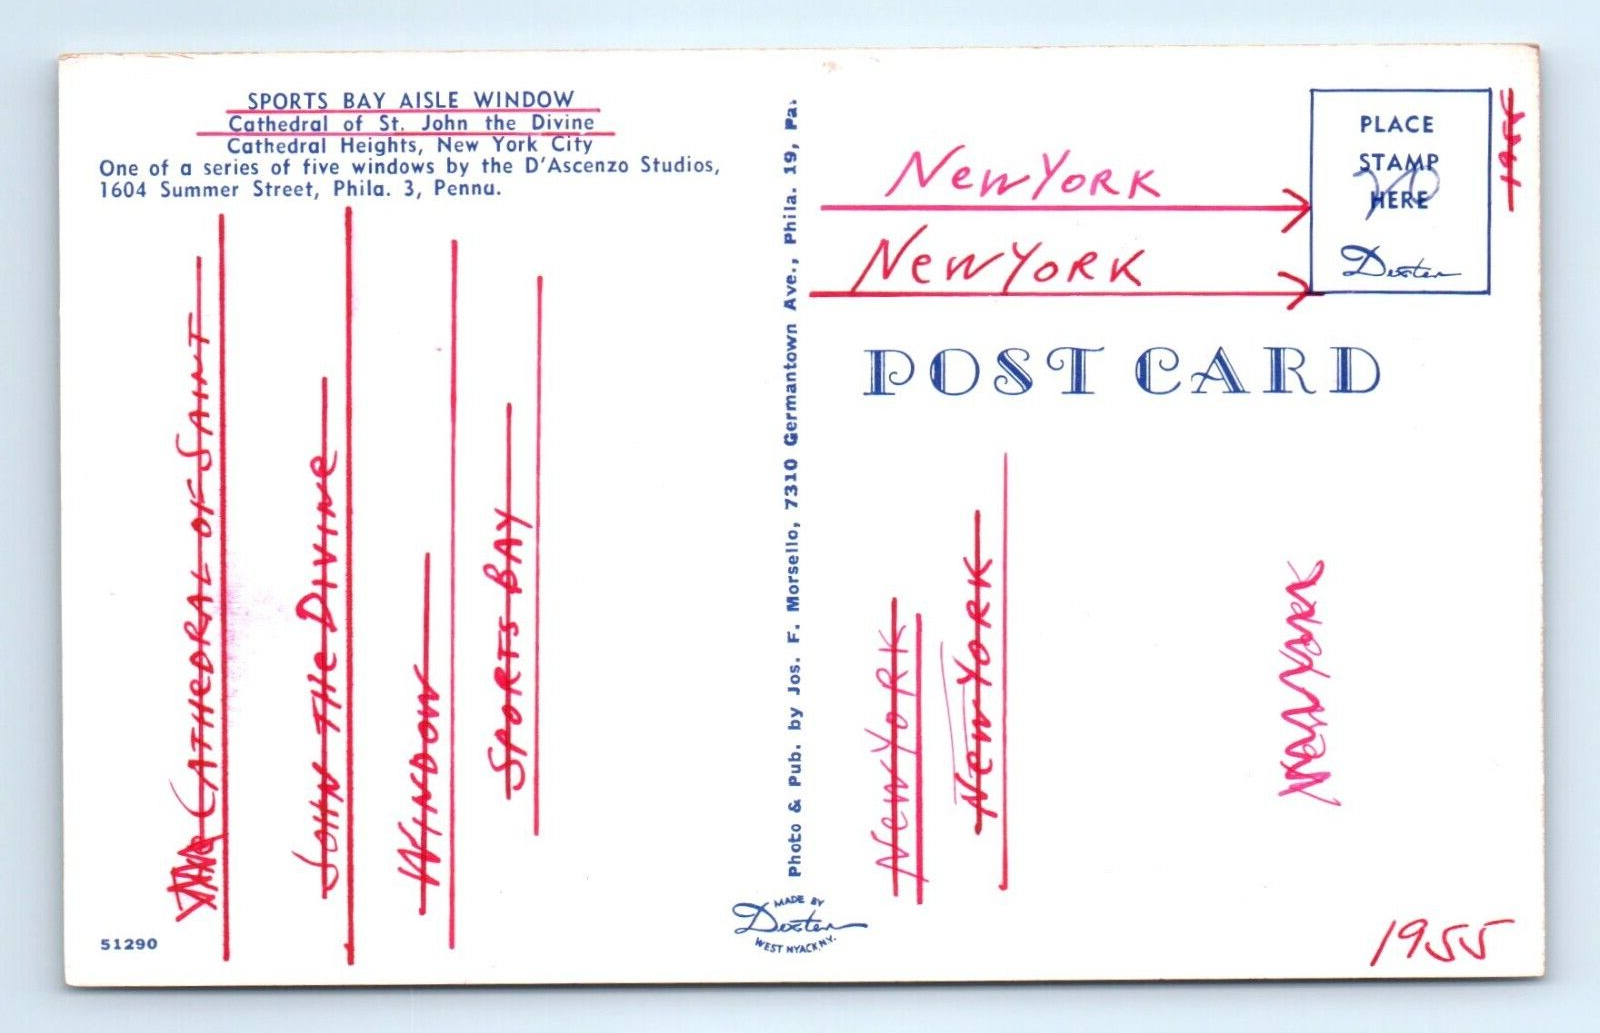 SPORTS BAY AISLE WINDOW
Cathedral of St. John the Divine
Cathedral Heights, New York City
One of a series of five windows by the D'Ascenzo Studios,
1604 Summer Street, Phila. 3, Penna.
CATHEDRAL OF SAINT
JOHN THE DIVINE
WINDOW
SPORTS BAY
51290
Photo & Pub. by Jos. F. Morsello, 7310 Germantown Ave., Phila. 19, Pa.
MADE BY
Dexter
WEST NYACK, N.Y.
New YORK
New YORK
PLACE
STAMP
HERE
Dexter
1955
POST CARD
New YORK
New YORK
New York
1955